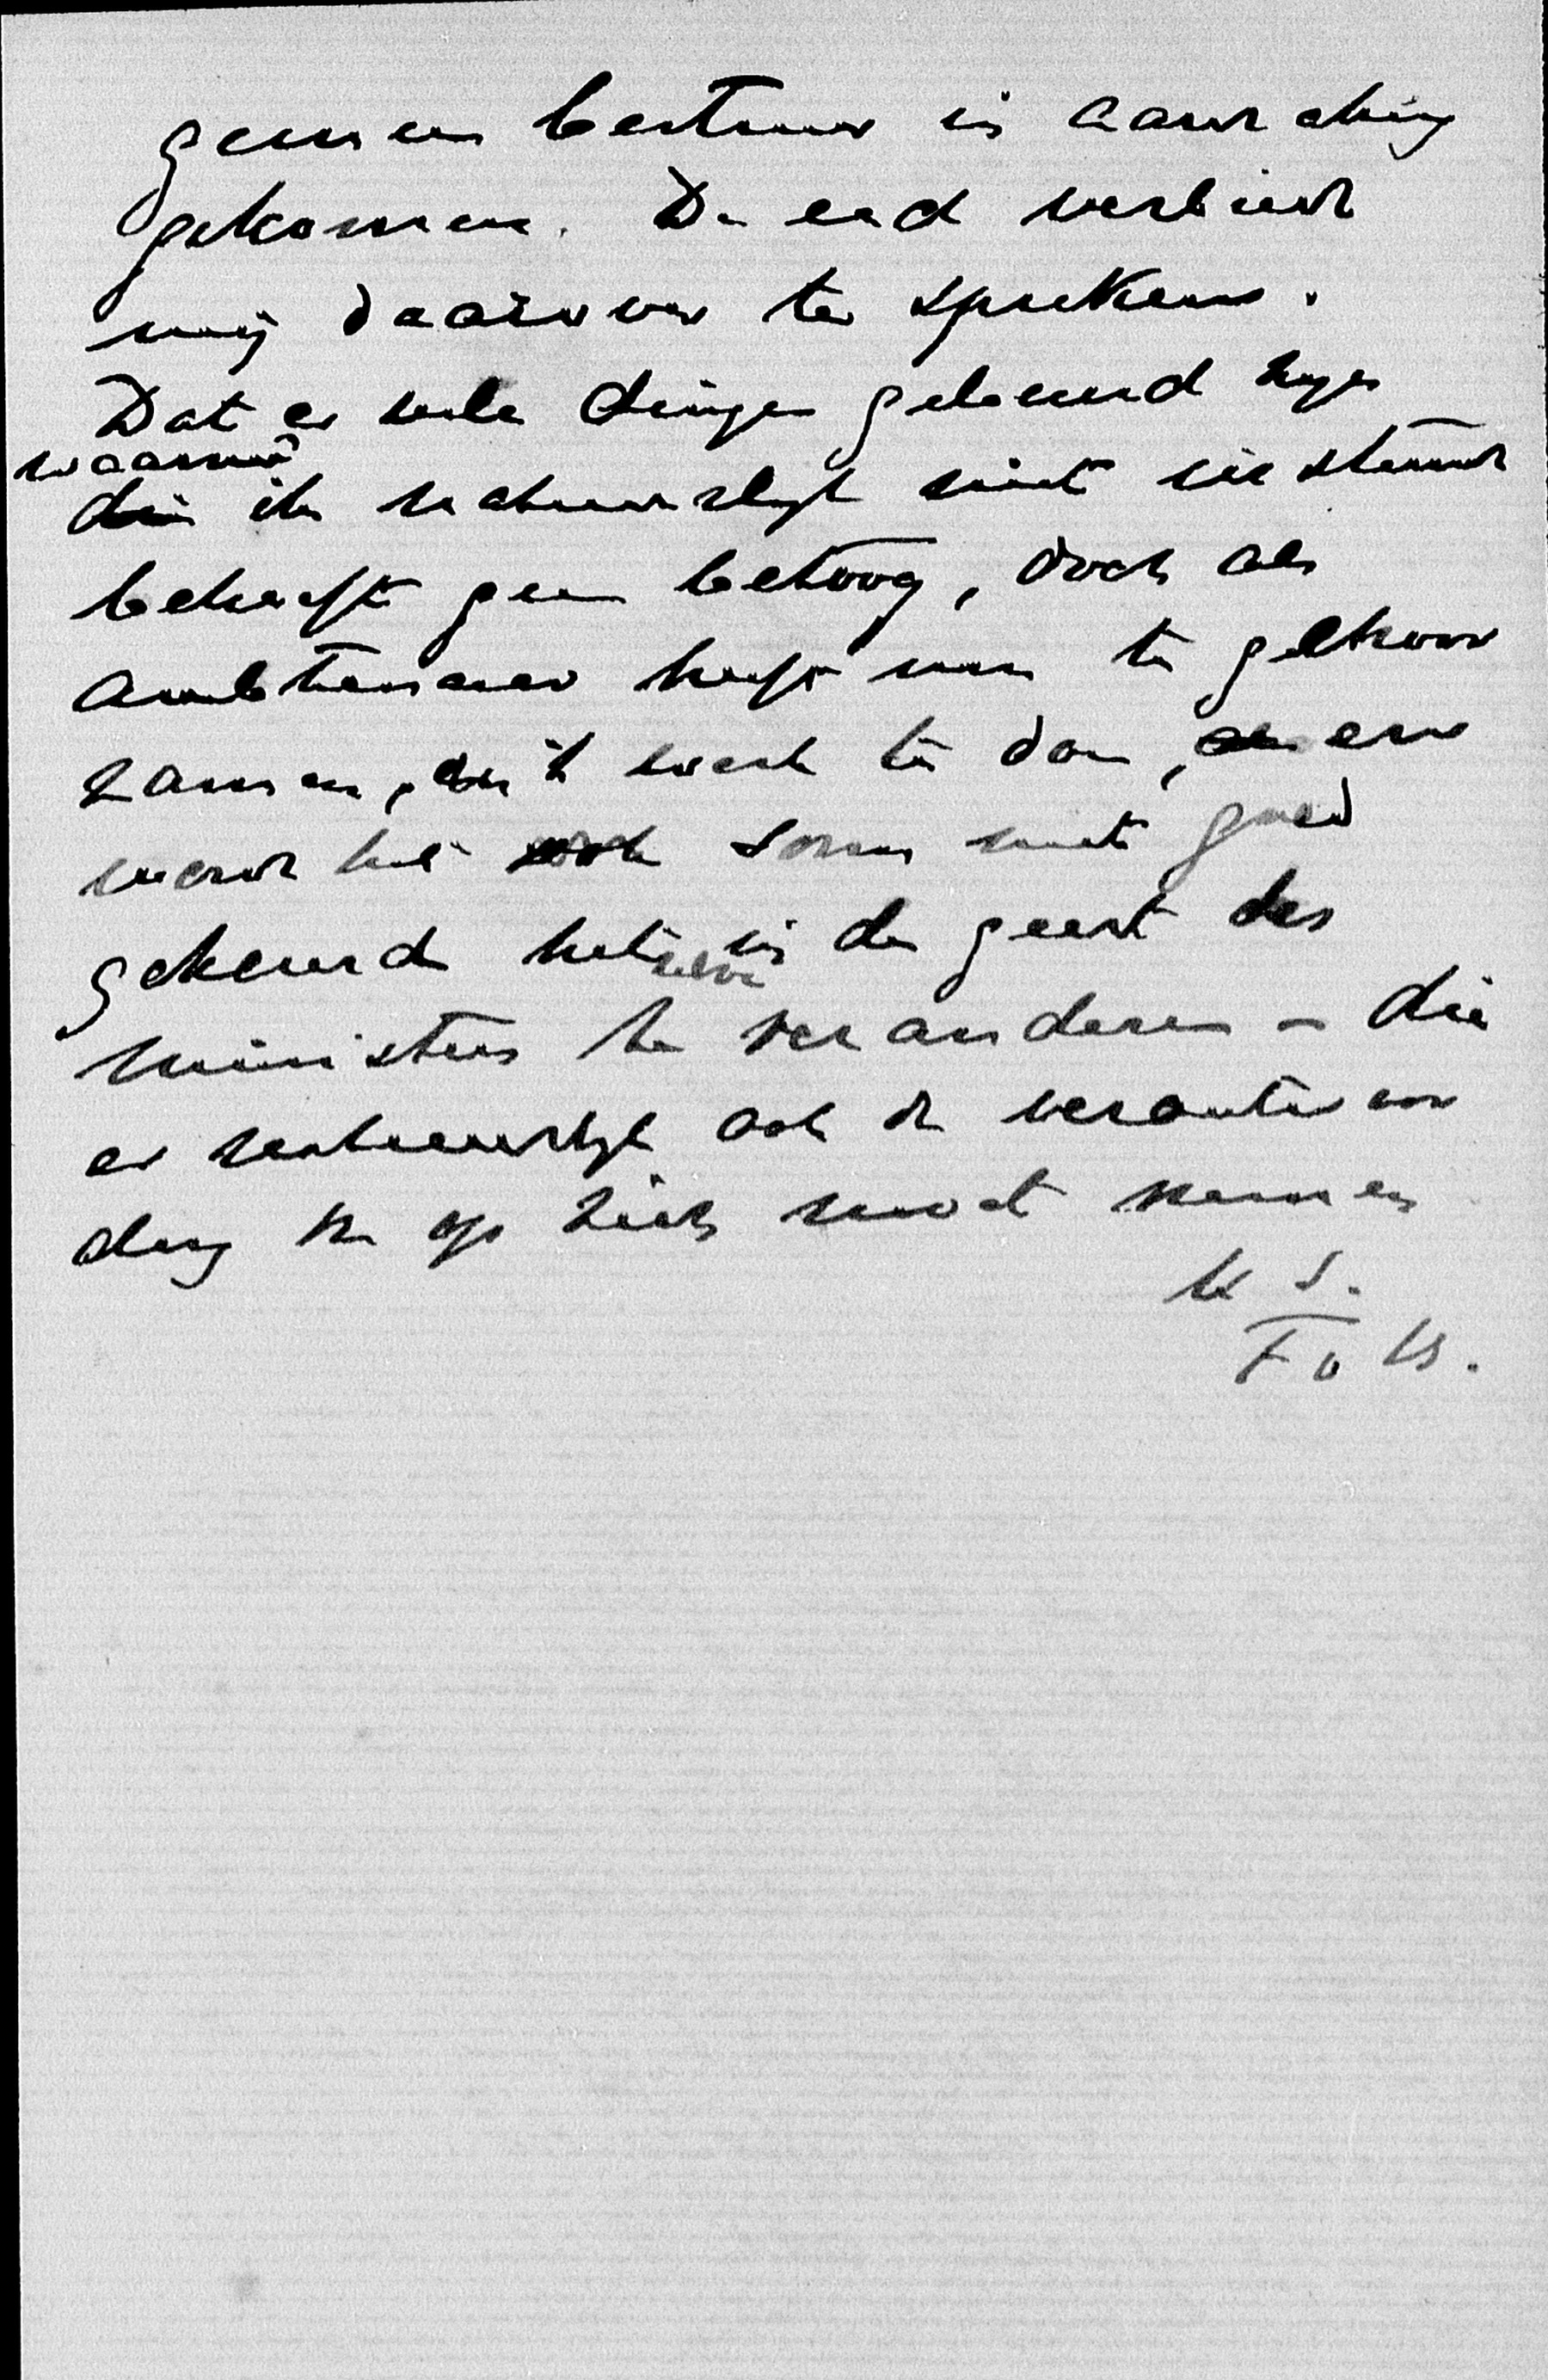 gemeen bestuur in aanraking
gekomen. De eed verbiedt
mij daarover te spreken.
Dat er vele dingen gebeurd zijn
waarmee
die ik natuurlijk niet instemde
behoeft geen betoog, doch als
ambtenaar heeft men te gehoor
zamen, en 't werk te doen, en
werd het ook soms niet goed
gekeurd het in de geest des
ministers te veranderen - die
er natuurlijk ook de verantwoor
ding van op zich moet nemen